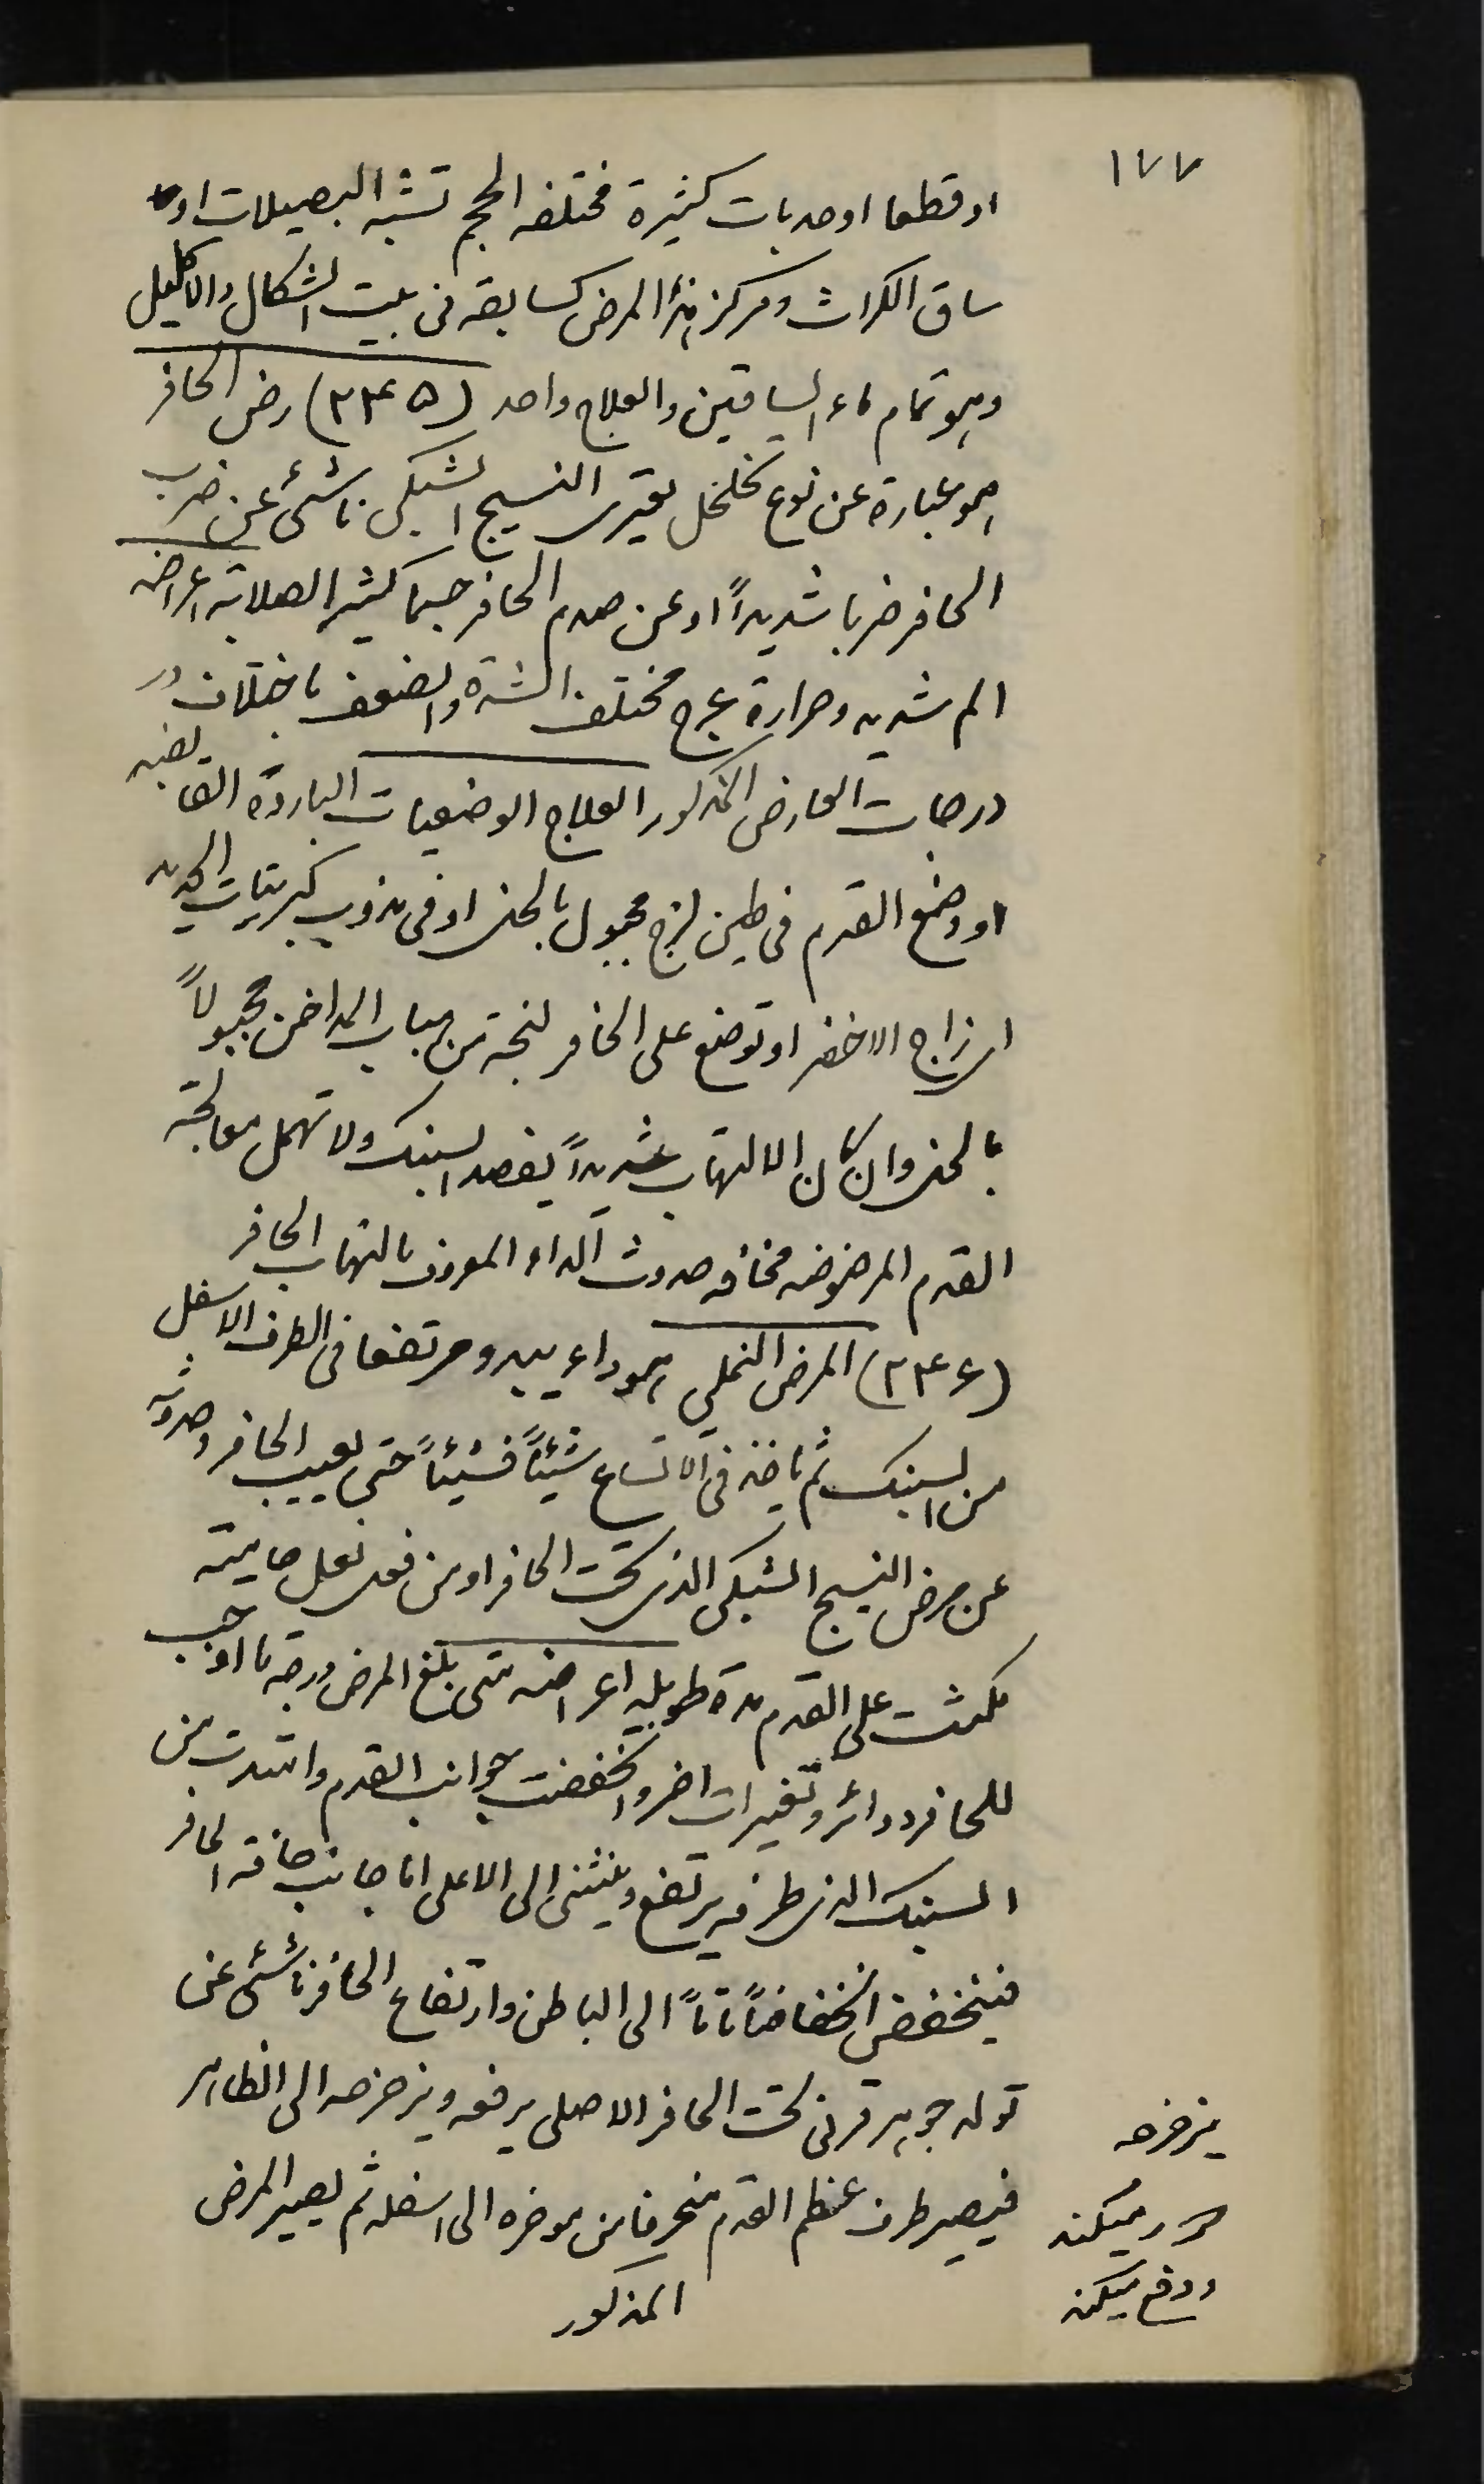 ١٧٧
او قطعا او حدبات كثيرة مختلفه الحجم تشبه البصيلات او
ساق الكراث ومركز هذا المرض كسابقه فى بيت الشكال والاكليل
وهو تمام ماء الساقين والعلاج واحد (٢٣٤٥) رض الحافر
هو عبارة عن نوع تخلخل يعترى النسيج الشبكى ناشئ عن ضرب
الحافر ضربا شديداً او عن صدم الحافر جسما كثير الصلابة اعراضه
الم شديد وحرارة عرج مختلف الشدة والضعف باختلاف
درجات العارض المذكور العلاج الوضعيات الباردة القابضه
او وضع القدم فى طين لزج مجبول بالخل او فى مذوب كبريتات الحديد
اى زاج الاخضر او توضع على الحافر لبخة من هباب المداخن مجبولاً
بالخل وان كان الالتهاب شديداً يفصد السنبك ولا تهمل معالجة
القدم المرضوضه مخافه حدوث الداء المعروف بالتهاب الحافر
(٢٣٤٦) المرض النملي هو داء يبدو مرتفعا فى الطرف الاسفل
من السنبك ثم ياخذ فى الاتساع شيئاً فشيئاً حتى يعيب الحافر وحدوثه
عن مرض النسيج الشبكى الذى تحت الحافر او من فعل نعل حاميته
مكثت على القدم مدة طويله اعراضه متى بلغ المرض درجة ما اوجب
للحافر دوائر وتغيرات اخر وانخفضت جوانب القدم وامتدت من
السنبك الذى طرفه يرتفع وينثنى الى الاعلى اما جانب حافة الحافر
فينخفض انخفاضاً تاماً الى الباطن وارتفاع الحافر ناشئ عن
تولد جوهر قرنى تحت الحافر الاصلى يرفعه ويزحزحه الى الظاهر
فيصير طرف عظم القدم منحرفا من موخره الى اسفله ثم يصير المرض
المذكور
يزحزحه
دور ميكند
ودفع ميكند